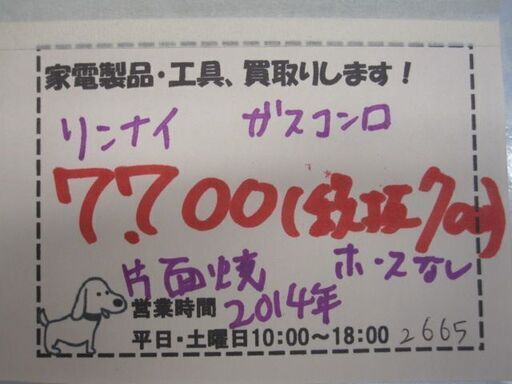 家電製品・工具、買取りします！
リンナイ ガスコンロ
7.700(税抜7000)
片面焼 ホースなし
営業時間 2014年
平日・土曜日10:00～18:00 2665